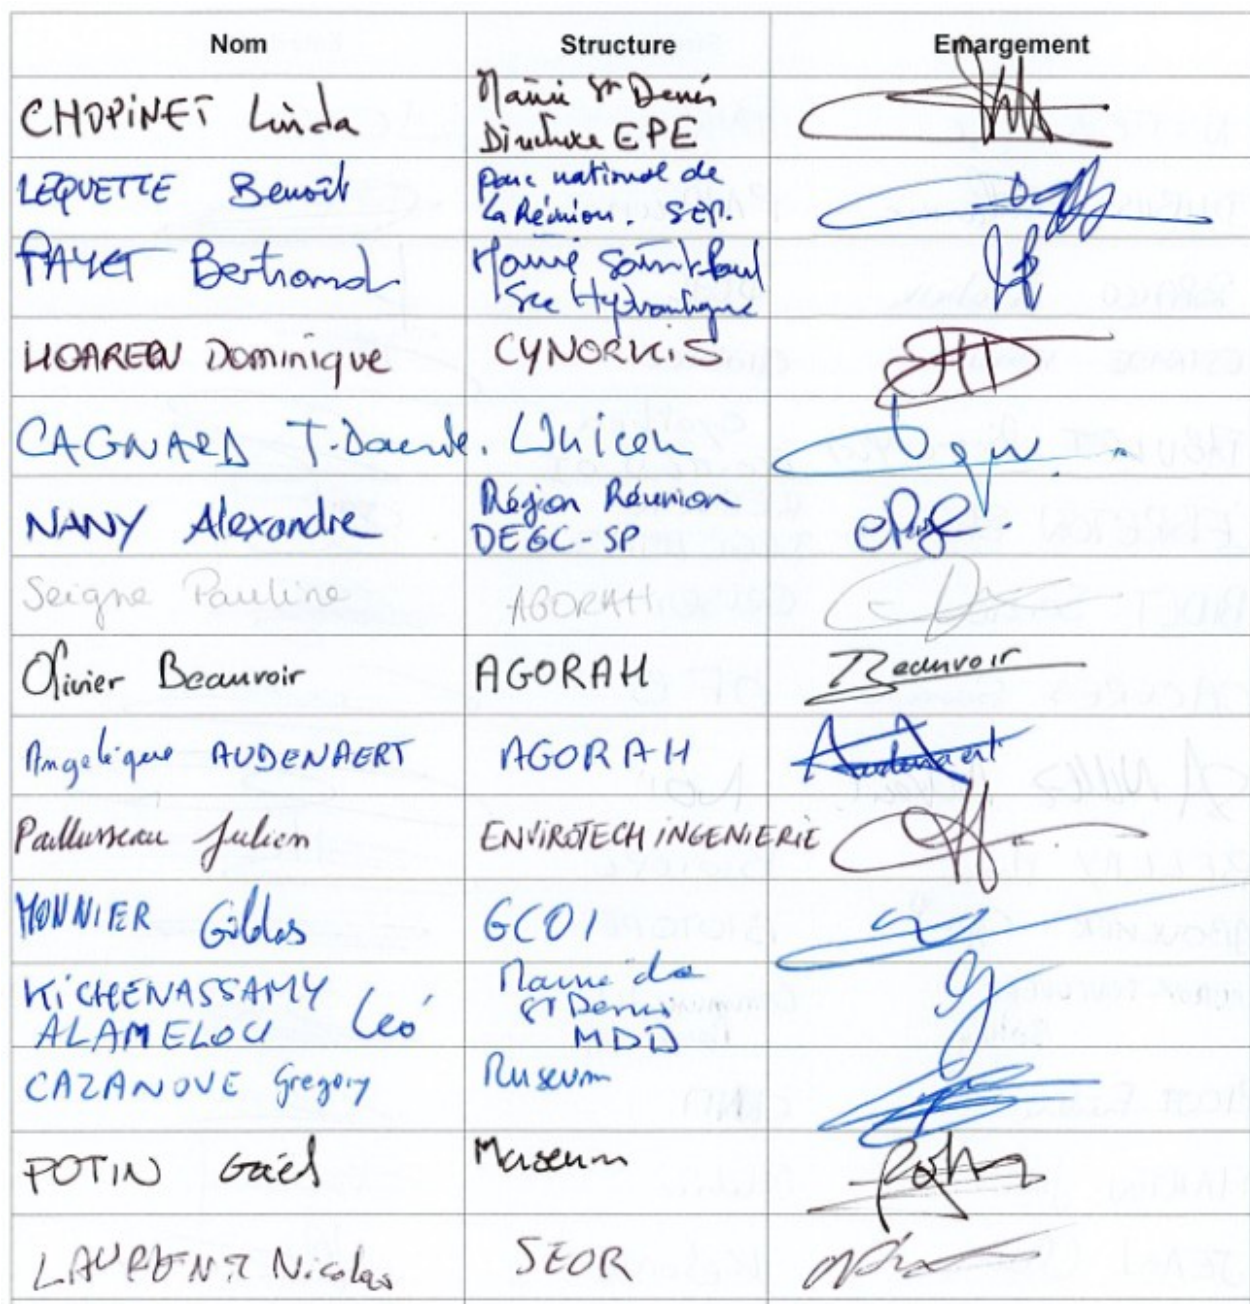 Nom Structure Emargement
CHOPINET Linda Mairie St Denis
Directrice EPE
LEQUETTE Benoît parc national de
La Réunion. SEP.
PAYET Bertrand Mairie Saint Paul
Sce Hydraulique
HOAREAU Dominique CYNORKIS
CAGNARD
NANY Alexandre Région Réunion
DEGC-SP
Seigne Pauline AGORAH
Olivier Beauvoir AGORAH Beauvoir
Angélique AUDENAERT AGORAH Audenaert
Paillusseau Julien ENVIROTECH INGENIERIE
MONNIER Gildas GCOI
KICHENASSAMY Mairie de
ALAMELOU Leó St Denis
MDD
CAZANOVE Gregory Museum
POTIN Gaël Museum
LAURENT Nicolas SEOR